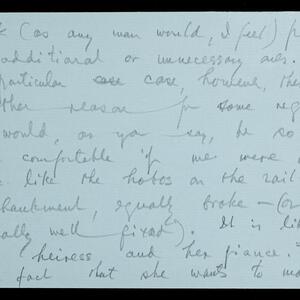 (as any man would, I feel) f
additional or unnecessary ones.
particular case case, however, the
ther reason for some reg
would, as you say, be so
comfortable if we were
like the hobos on the rail
bankment, equally broke — (or
ally well fixed). It is li
heiress and her fiance."
fact that she wants to ma